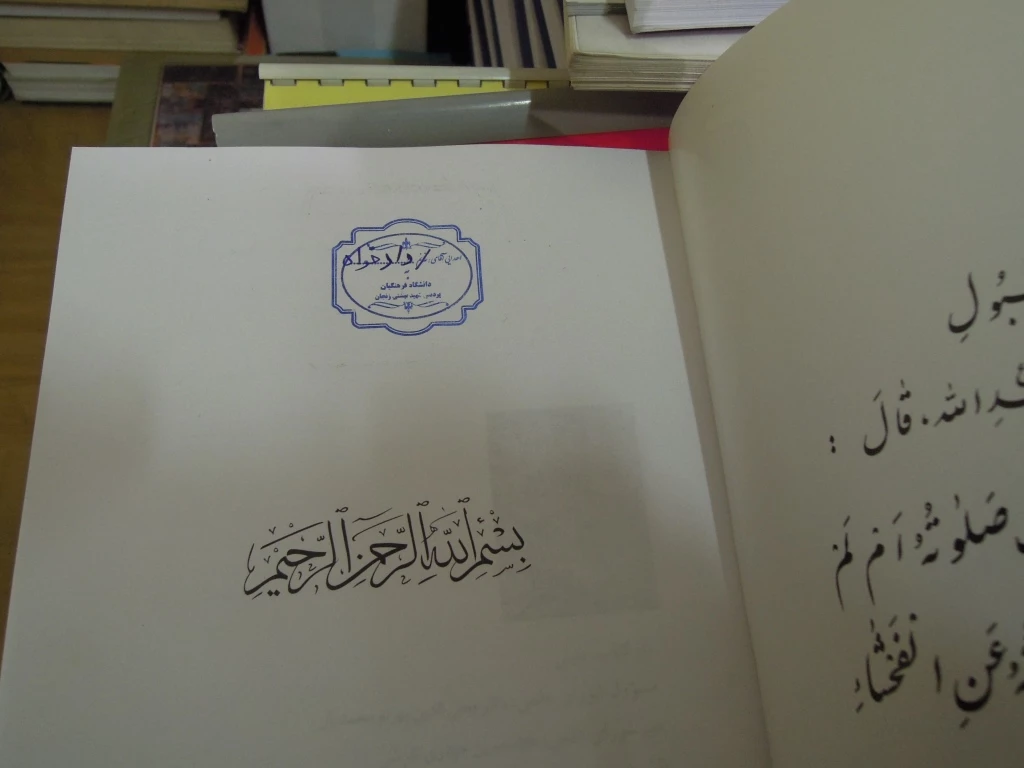 اهدایی آقای دادخواه
دانشگاه فرهنگیان
پردیس شهید بهشتی زنجان
بِسْمِ ٱللَّهِ ٱلرَّحْمَٰنِ ٱلرَّحِيمِ
الله. قالَ :
صَلوتُهُ اَمْ لَمْ
عَنِ الْفَحْشاءِ